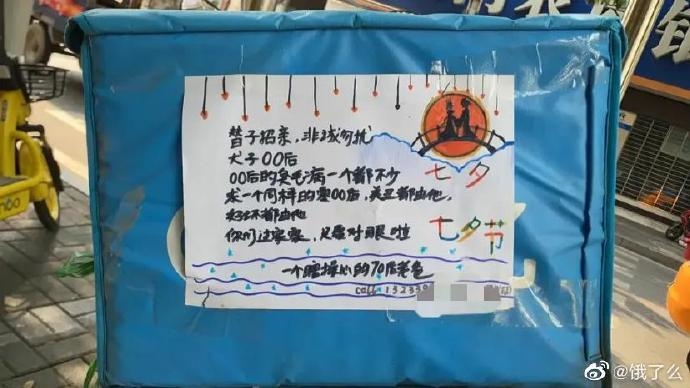 替子招亲,非诚勿扰
犬子00后
00后的臭毛病一个都不少
求一个同样的零00后,美丑都由他,
好坏都由他
你们过家家,只需对眼啦
一个瞎操心的70后老爸
call 132330
七夕
七夕节
@饿了么